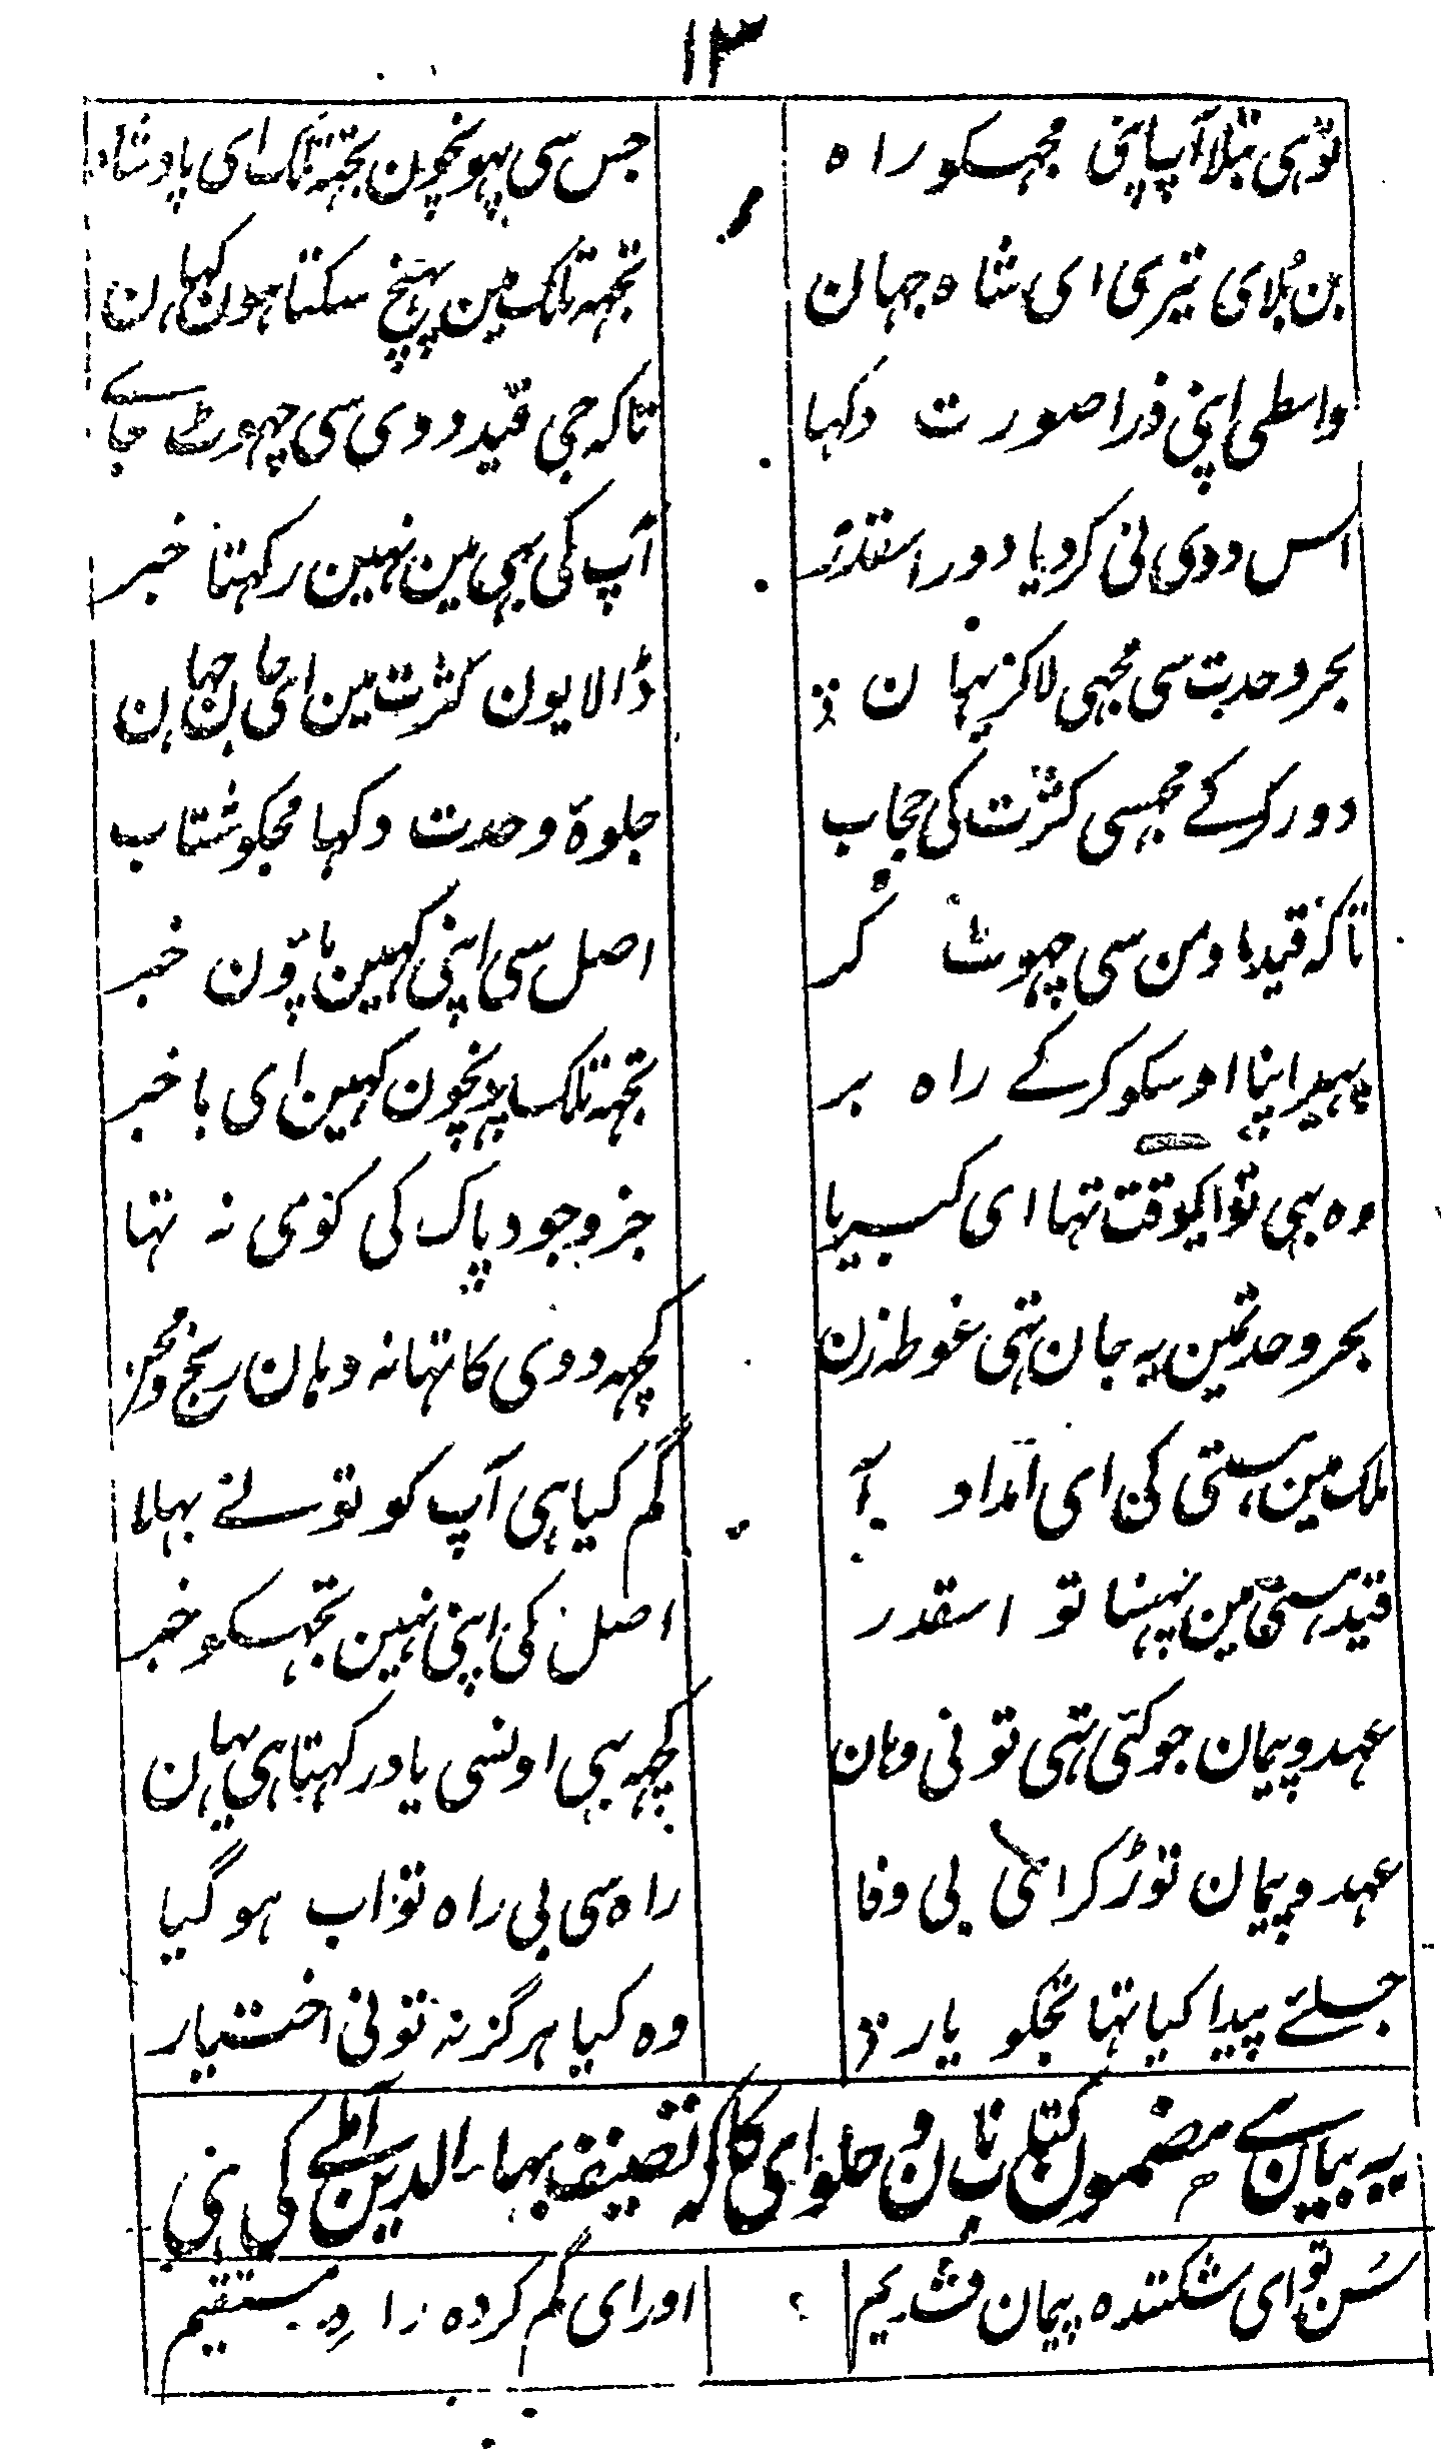 ۱۳
توہی بتلا آپاپنی مجہکو راہ جس سی پہونچون تجہتلک ای پادشاہ
بن بُلای تیری ای شاہ جہان تجہہ تلک مین پہنچ سکتا ہون کہان
واسطی اپنی ذرا صورت دکہا تاکہ جی قید دودی سی چہوٹ جاکے
اس ددی نی کردیا دور اسقدر آپ کی بہی مین نہین رکہتا خبر
بحر وحدت سی مجہی لاکر نہان ڈالا یون کثرت مین ای جان جہان
دور کرکے مجہسی کثرت کی حجاب جلوۂ وحدت دکہا مجکو شتاب
تاکہ قید ما ومن سی چہوٹ کر اصل سی اپنی کہین پاؤن خبر
پہیر اپنا اوسکو کرکے راہ بر تجہہ تلک پہونچون کہین ای باخبر
وہ بہی تو ایکوقت تہا ای کبریا جز وجود پاک کی کوئی نہ تہا
بحر وحدتمین یہ جان تہی غوطہ زن کچہہ دوی کا تہا نہ وہان رنج ومحن
ملک مین ہستی کی ای امداد آ گم کیا ہی آپ کو تو نے بہلا
قید ہستی مین پہنسا تو اسقدر اصل کی اپنی نہین تجہکو خبر
عہد وپیمان جو کئی تہی تو نی وہان کچہہ بہی اونسی یاد رکہتا ہی یہان
عہد وپیمان توڑ کر ای بی وفا راہ سی بی راہ تو اب ہو گیا
جسلئے پیدا کیا تہا تجکو یار وہ کیا ہرگز نہ تو نی اختیار
یہ بیان ہے مضمون کتاب نان و حلوای کا کہ تصنیف بہاء الدین آملے کی ہی
سُن تو ای شکنندہ پیمان قدیم اور ای گم کردہ راہِ مستقیم